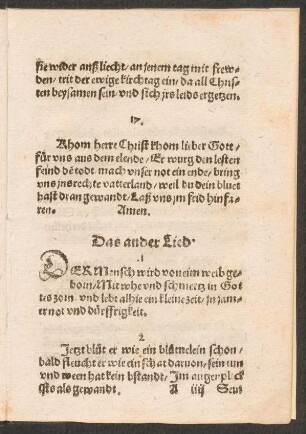 sie wider anß liecht / an jenem tag mit frew-
den / trit der ewige kirchtag ein / da all Chris-
ten beysamen sein / vnd sich jrs leids ergetzen.
17.
Khom herr Christ khom lieber Gott /
für vns aus dem elende / Er wurg den lesten
feind de todt mach vnser not ein ende / bring
vns jns rechte vatterland / weil du dein bluet
hast dran gewandt / Laß vns jm frid hinfa-
ren. Amen.
Das ander Lied.
1
DER Mensch wird von eim weib ge-
born / Mit wehe vnd schmertz in Got
tes zorn / vnd lebt alhie ein kleine zeit / in jam-
er not vnd dürfftigkeit.
2
Jetzt blüt er wie ein blümelein schon /
bald fleucht er wie ein schat daruon / sein tun
vnd wesen hat kein bstandt / Jm augenplick
ists als gewandt. A iiij Sein